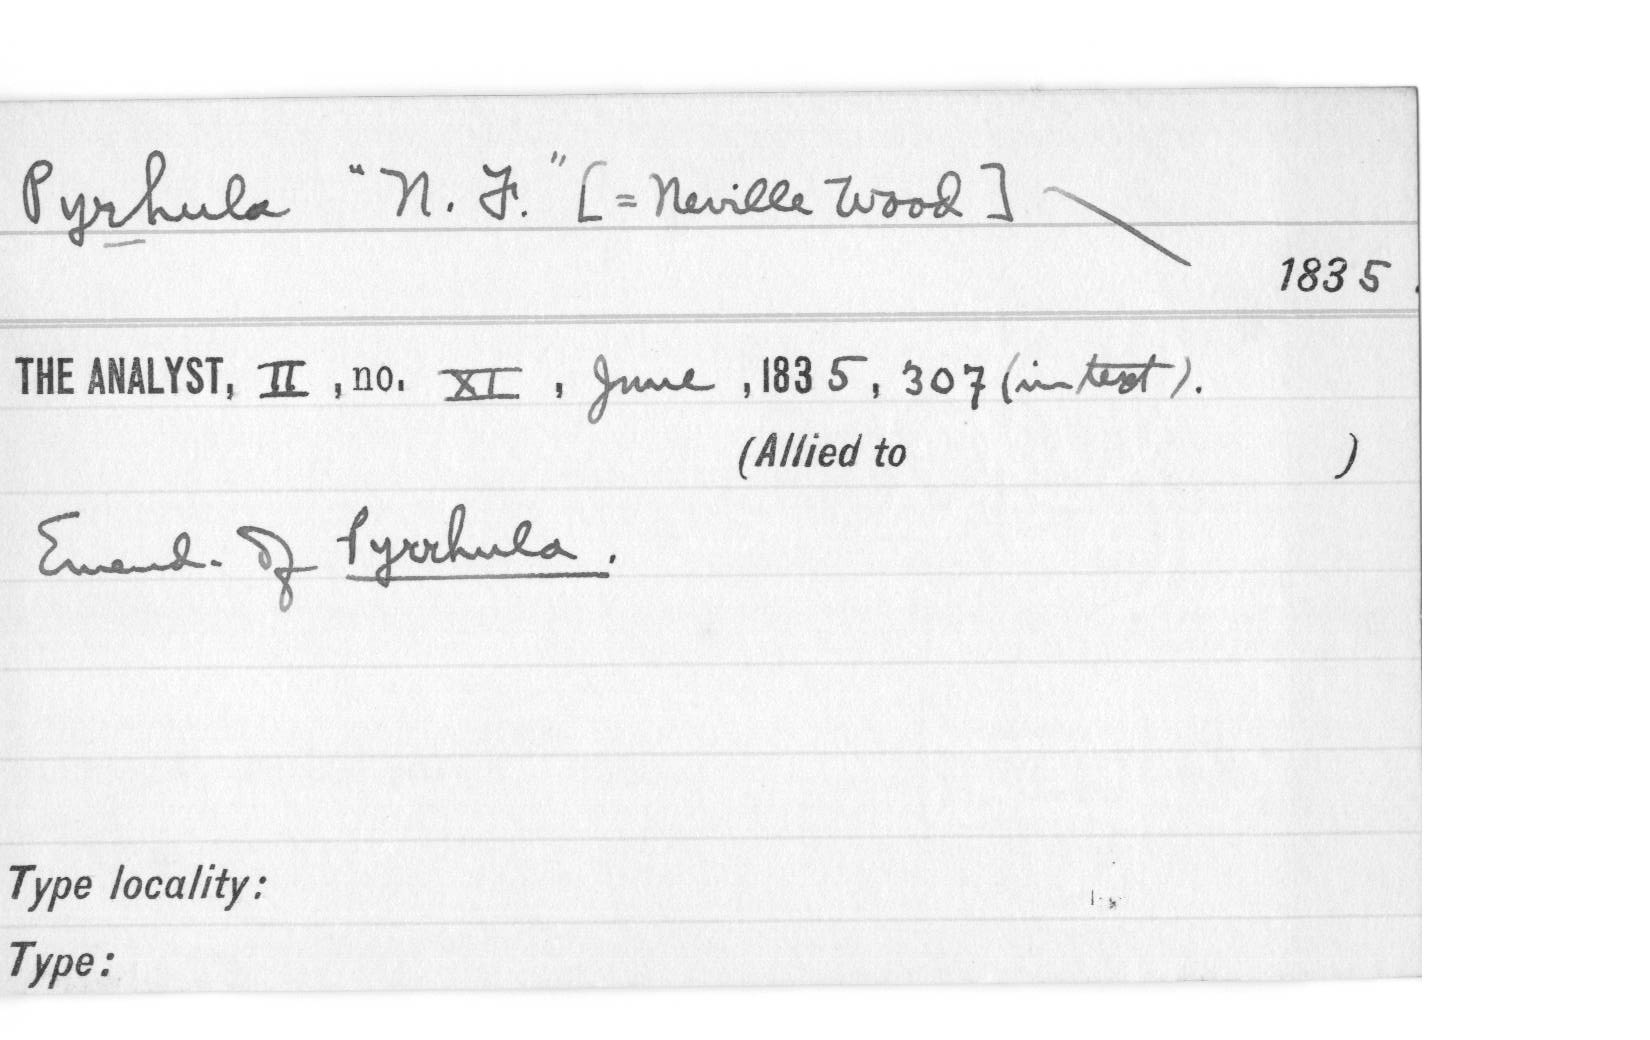 Pyrhula "N. F." [= Neville Wood]
1835.
THE ANALYST, II, no. XI, June, 1835, 307 (in text).
(Allied to )
Emend. of Pyrrhula.
Type locality:
Type: